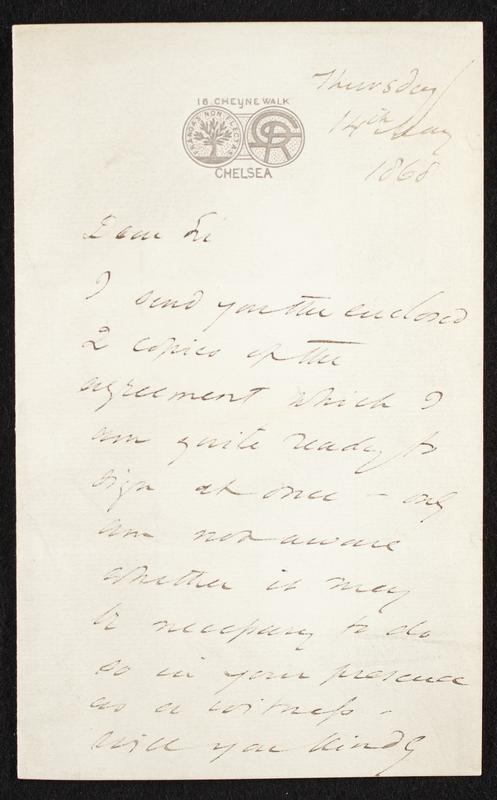 Thursday
14th May
1868
16 CHEYNE WALK
FRANGAS NON FLECTAS
GCR
CHELSEA
Dear Sir
I send you the enclosed
2 copies of the
agreement which I
am quite ready to
sign at once – only
am not aware
whether it may
be necessary to do
so in your presence
as a witness –
will you kindly